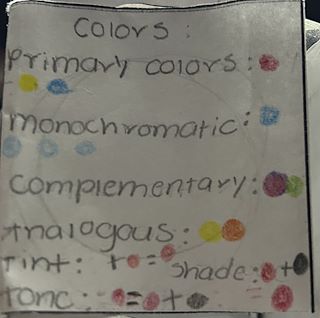 Colors:
Primary colors:
monochromatic:
Complementary:
Analogous:
Tint: + =
Shade: +
Tone: = + =